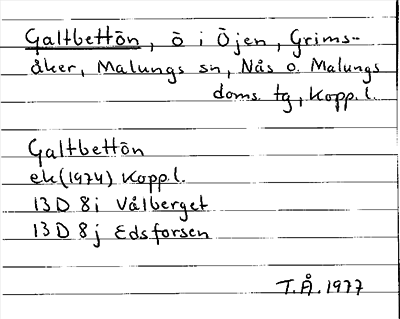 Galtbettön, ö i Öjen, Grims-
åker, Malungs sn, Nås o. Malungs
doms. tg, Kopp. l.
Galtbettön
ek (1974) Kopp. l.
13 D 8 i Vålberget
13 D 8 j Edsforsen
T.Å. 1977